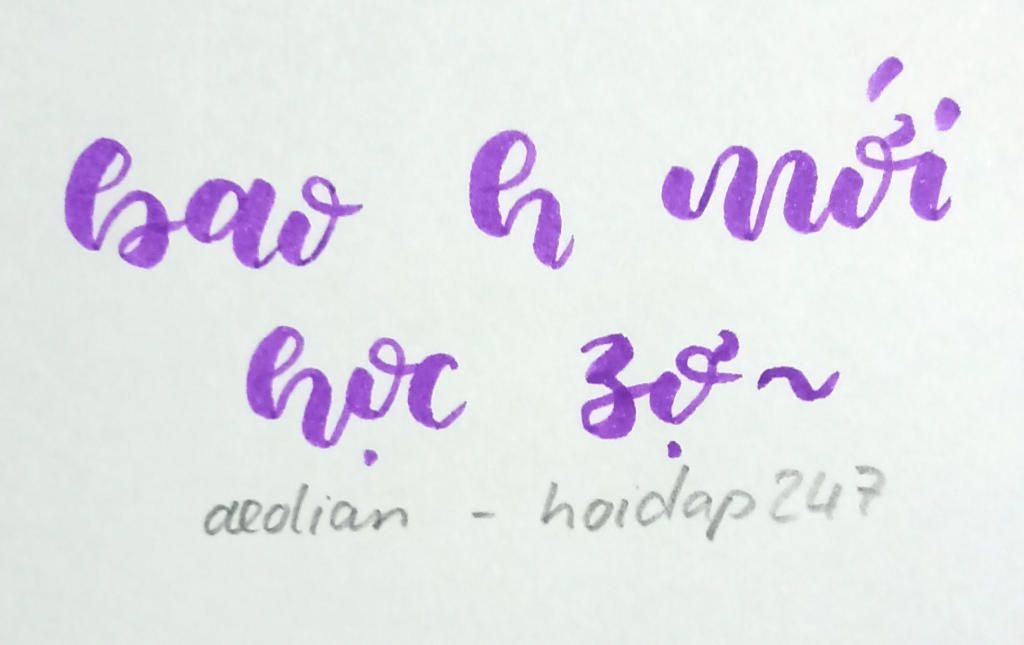 bao h mới
học zợ~
aeolian - hoidap247